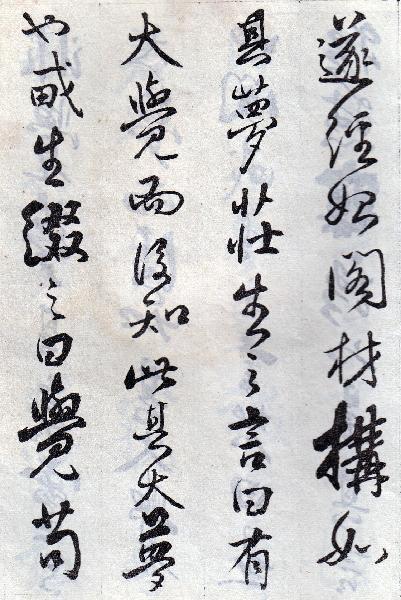 遂經始閣材構如
其夢莊生之言曰有
大覺而後知此其大夢
也生綴之曰覺苟